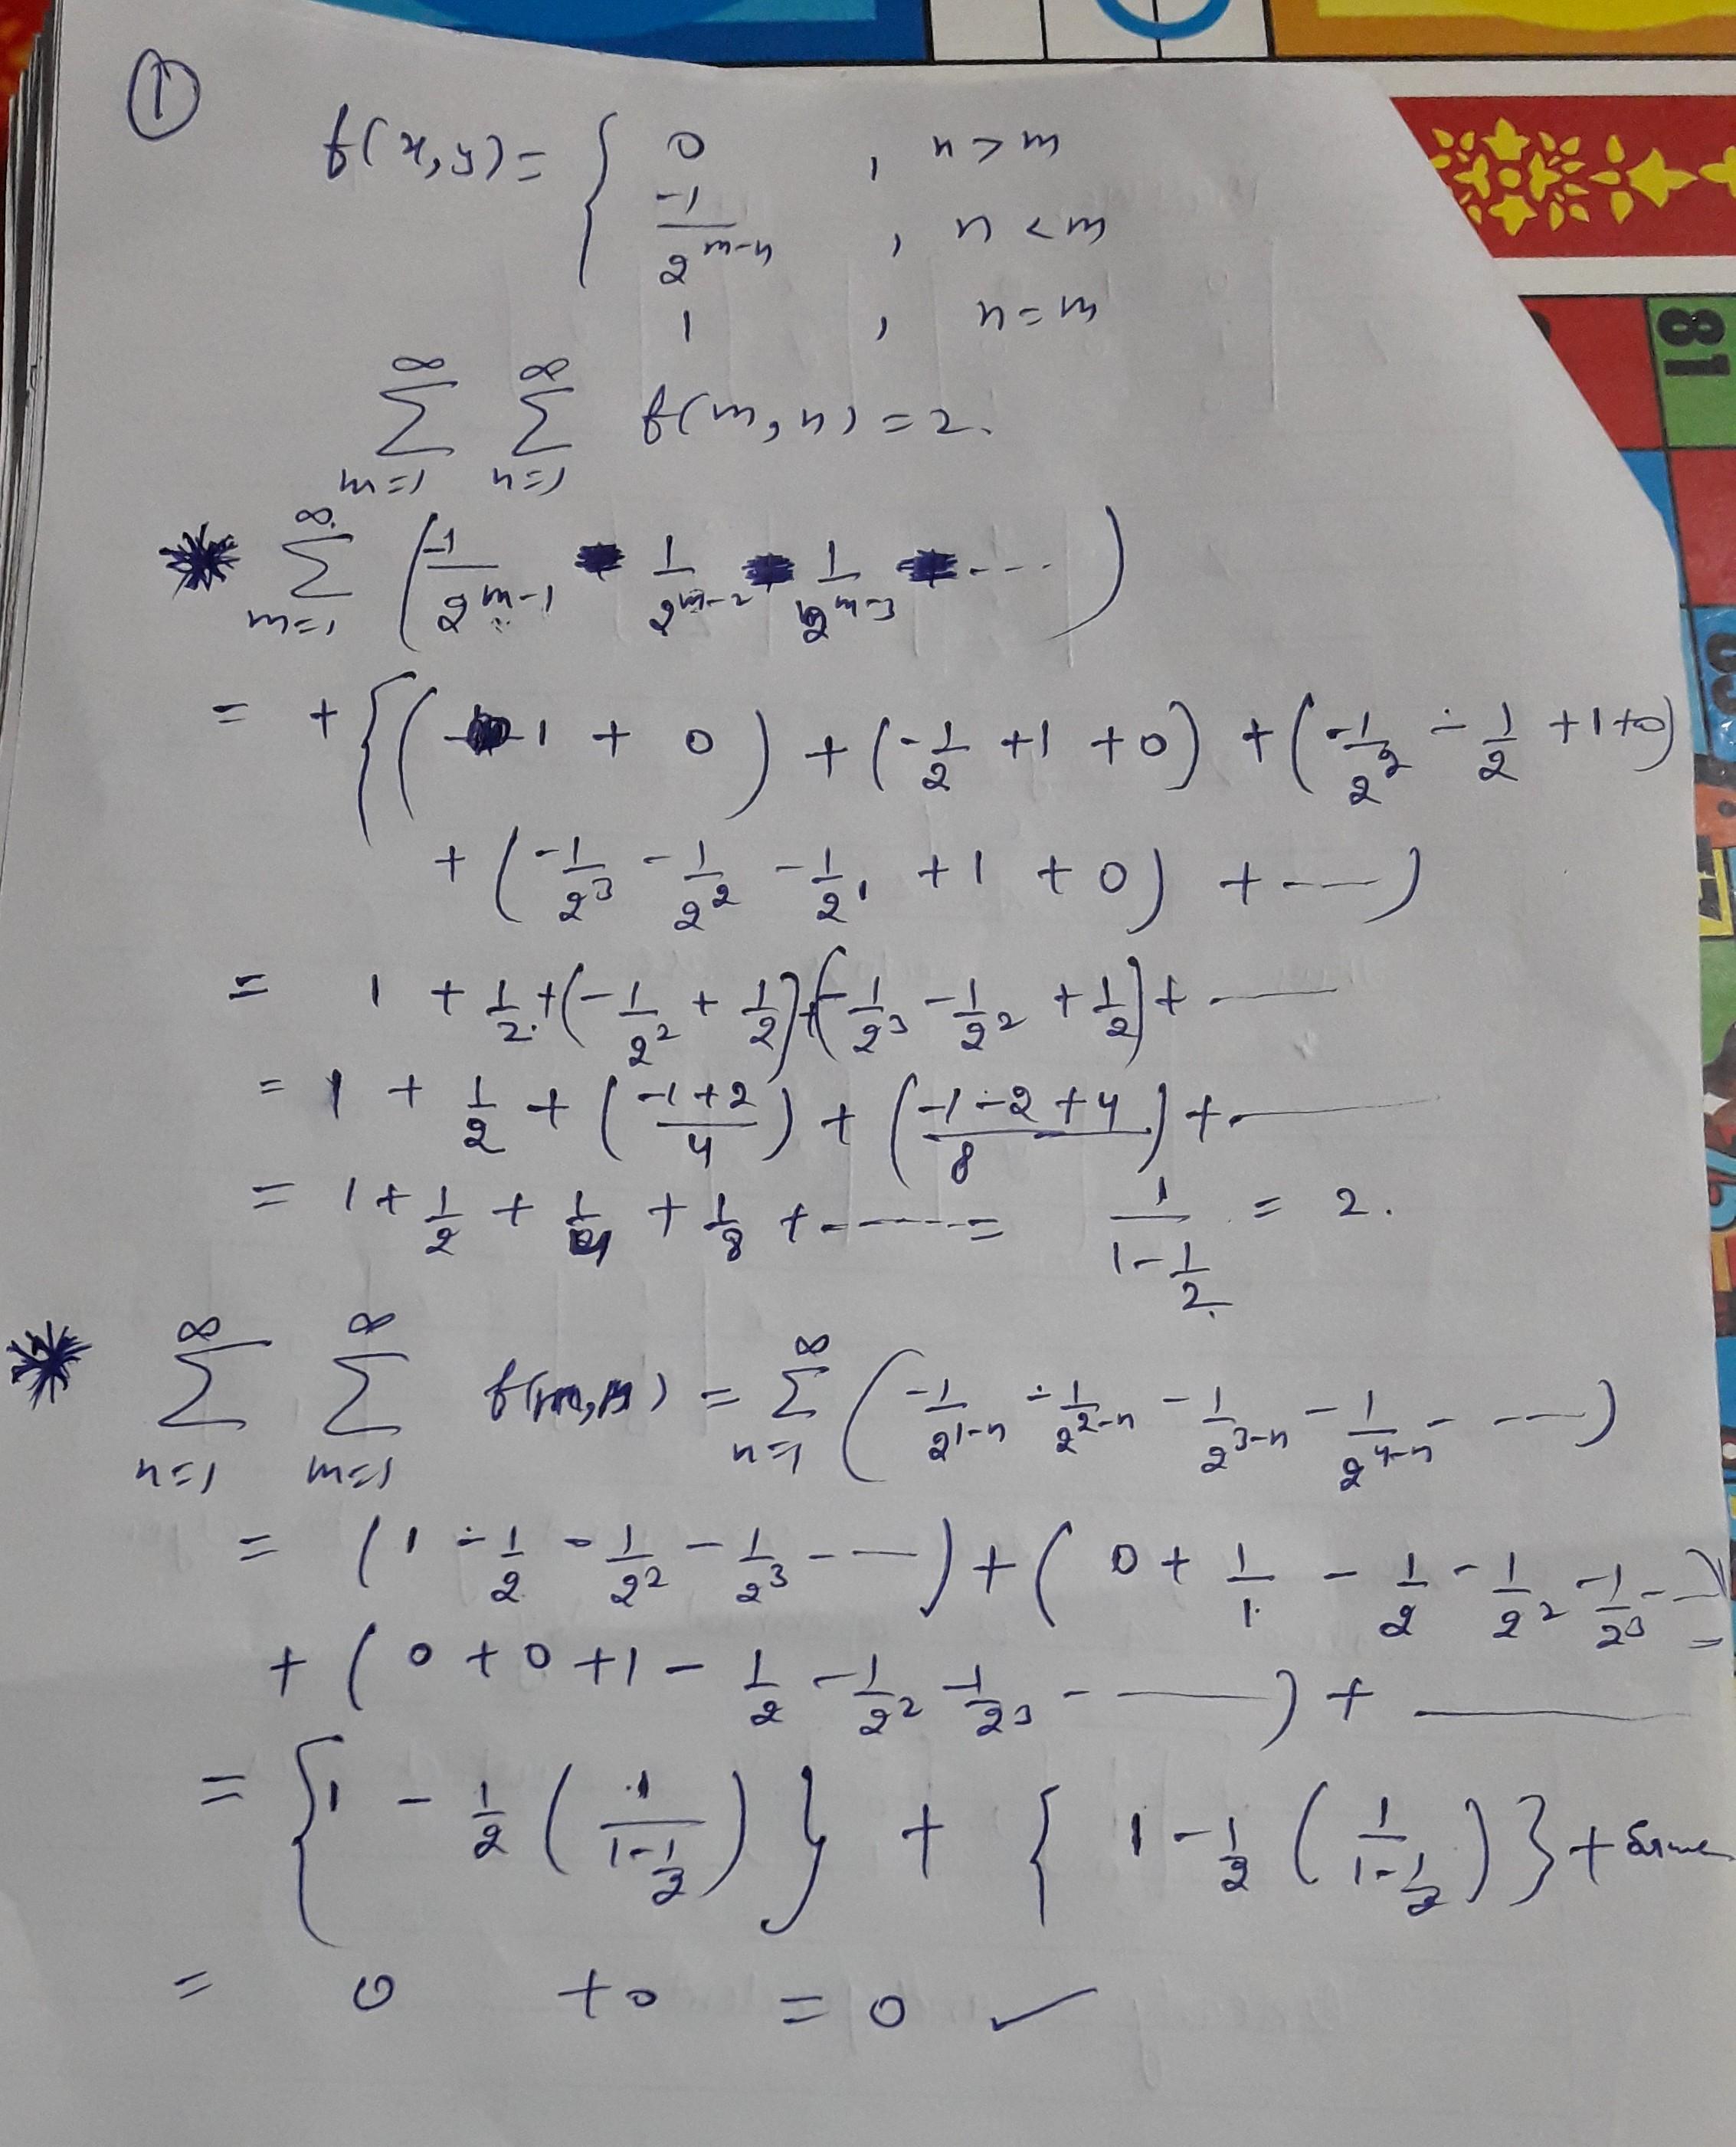 ①
f(x,y) = { 0 , n>m
-1/2^(m-n) , n<m
1 , n=m
∞ ∑ m=1 ∞ ∑ n=1 f(m,n) = 2.
∞ ∑ m=1 ( -1/2^(m-1) 1/2^(m-2) 1/2^(m-3) ---- )
= + { ( 1 + 0 ) + ( -1/2 +1 +0 ) + ( -1/2^2 - 1/2 +1+0 )
+ ( -1/2^3 - 1/2^2 - 1/2^1 +1 +0 ) + --- )
= 1 + 1/2 + ( -1/2^2 + 1/2 ) + ( -1/2^3 - 1/2^2 + 1/2 ) + ---
= 1 + 1/2 + ( (-1+2)/4 ) + ( (-1-2+4)/8 ) + ---
= 1 + 1/2 + 1/4 + 1/8 + ----- = 1/(1-1/2) = 2.
∞ ∑ n=1 ∞ ∑ m=1 f(m,n) = ∞ ∑ n=1 ( -1/2^(1-n) - 1/2^(2-n) - 1/2^(3-n) - 1/2^(4-n) - --- )
= ( 1 - 1/2 - 1/2^2 - 1/2^3 - --- ) + ( 0 + 1/1 - 1/2 - 1/2^2 - 1/2^3 - -- ) =
+ ( 0+0+1 - 1/2 - 1/2^2 - 1/2^3 - --- ) + ---
= { 1 - 1/2 ( 1/(1-1/2) ) } + { 1 - 1/2 ( 1/(1-1/2) ) } + same
= 0 +0 = 0 ✓
81